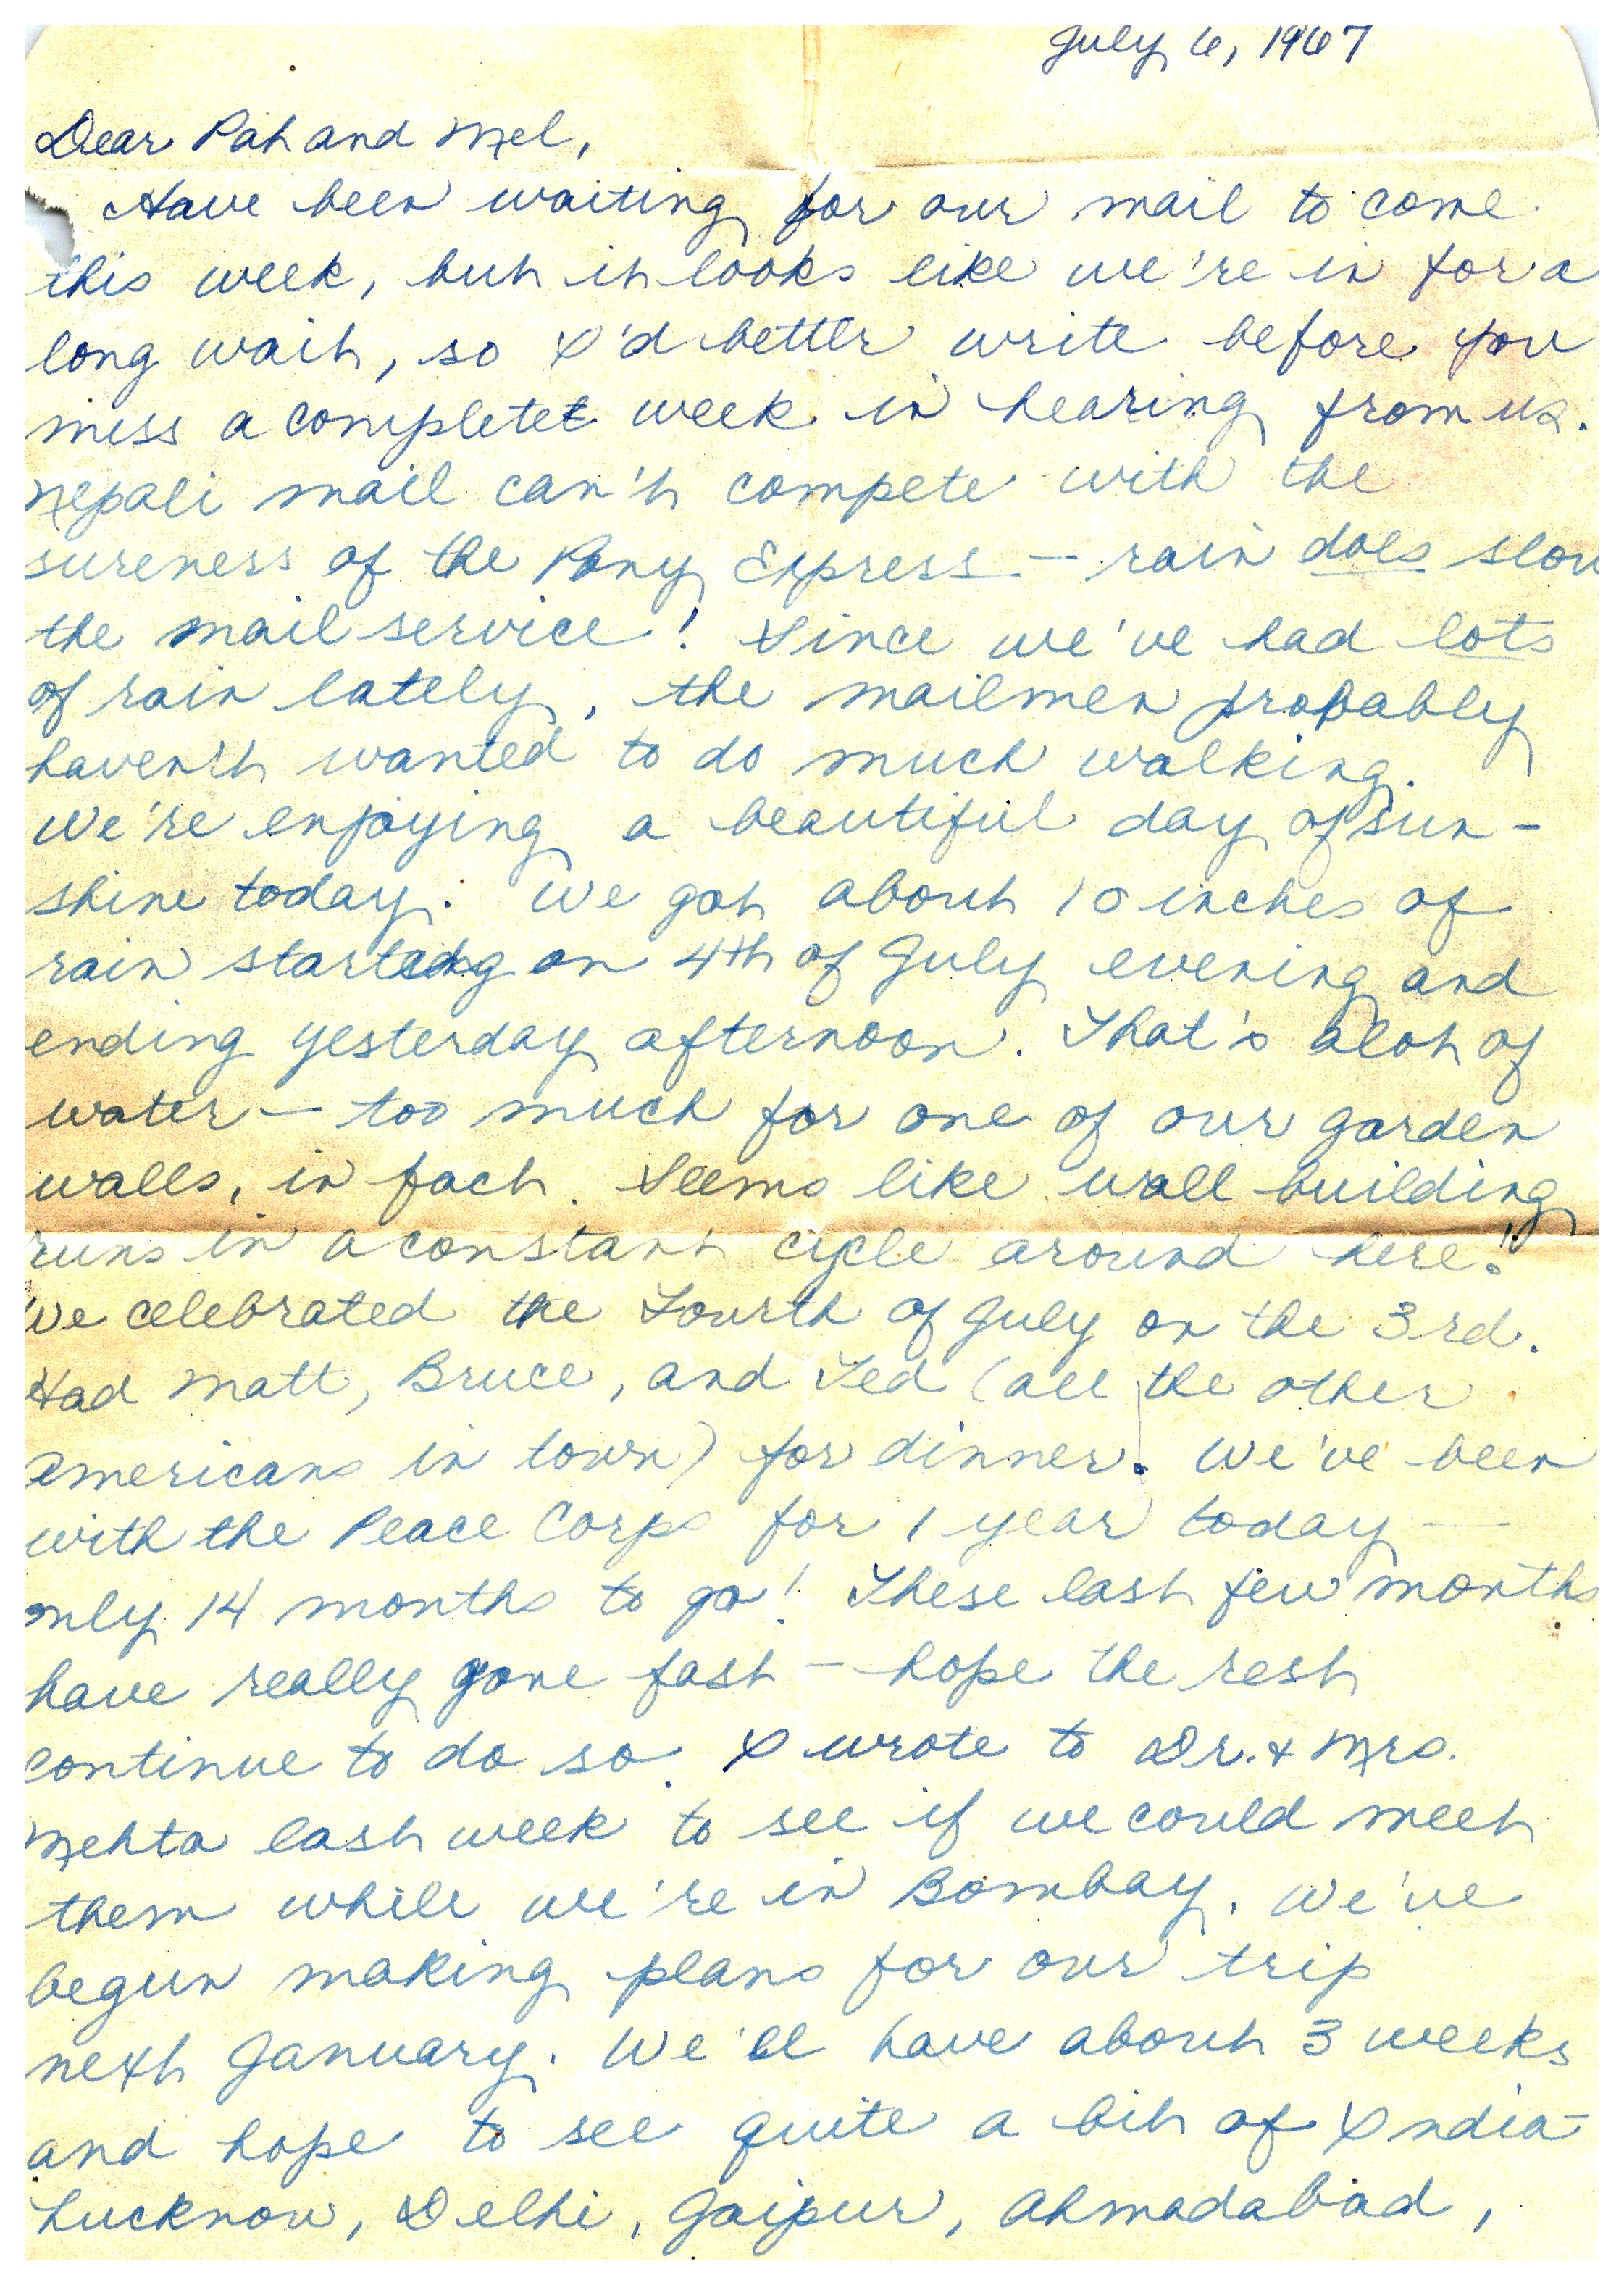 July 6, 1967
Dear Pat and Mel,
Have been waiting for our mail to come
this week, but it looks like we're in for a
long wait, so I'd better write before you
miss a complete week in hearing from us.
Nepali mail can't compete with the
sureness of the Pony Express — rain does slow
the mail service! Since we've had lots
of rain lately, the mailmen probably
haven't wanted to do much walking.
We're enjoying a beautiful day of sun-
shine today. We got about 10 inches of
rain starting on 4th of July evening and
ending yesterday afternoon. That's alot of
water — too much for one of our garden
walls, in fact. Seems like wall building
runs in a constant cycle around here!
We celebrated the Fourth of July on the 3rd.
Had Matt, Bruce, and Ted (all the other
Americans in town) for dinner. We've been
with the Peace Corps for 1 year today —
only 14 months to go! These last few months
have really gone fast — hope the rest
continue to do so. I wrote to Dr. & Mrs.
Mehta last week to see if we could meet
them while we're in Bombay. We've
begun making plans for our trip
next January. We'll have about 3 weeks
and hope to see quite a bit of India -
Lucknow, Delhi, Jaipur, Ahmadabad,